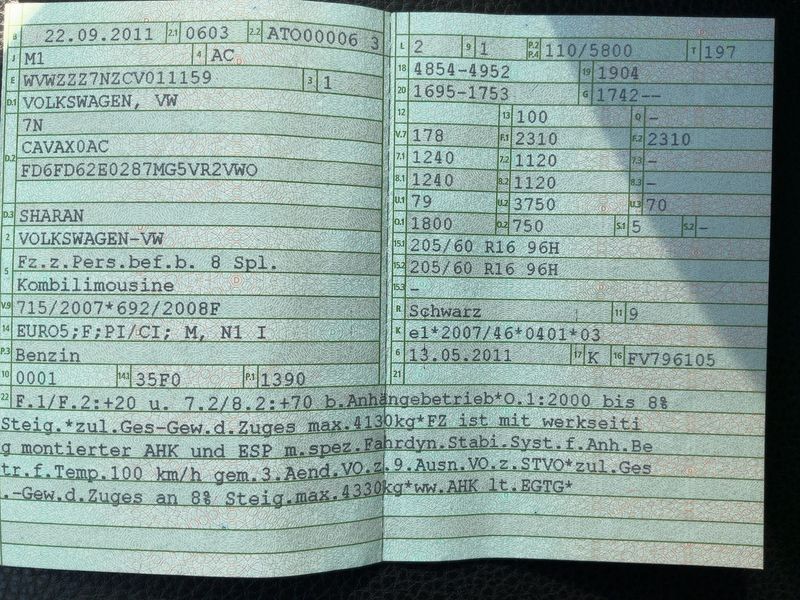 B 22.09.2011 2.1 0603 2.2 ATO00006 3
J M1 4 AC
E WVWZZZ7NZCV011159 3 1
D.1 VOLKSWAGEN, VW
7N
D.2 CAVAX0AC
FD6FD62E0287MG5VR2VWO
D.3 SHARAN
2 VOLKSWAGEN-VW
5 Fz.z.Pers.bef.b. 8 Spl.
Kombilimousine
V.9 715/2007*692/2008F
14 EURO5;F;PI/CI; M, N1 I
P.3 Benzin
10 0001 14.1 35F0 P.1 1390
L 2 9 1 P.2 P.4 110/5800 T 197
18 4854-4952 19 1904
20 1695-1753 G 1742--
12 13 100 Q -
V.7 178 F.1 2310 F.2 2310
7.1 1240 7.2 1120 7.3 -
8.1 1240 8.2 1120 8.3 -
U.1 79 U.2 3750 U.3 70
O.1 1800 O.2 750 S.1 5 S.2 -
15.1 205/60 R16 96H
15.2 205/60 R16 96H
15.3 -
R Schwarz 11 9
K e1*2007/46*0401*03
6 13.05.2011 17 K 16 FV796105
21
22 F.1/F.2:+20 u. 7.2/8.2:+70 b.Anhängebetrieb*O.1:2000 bis 8%
Steig.*zul.Ges-Gew.d.Zuges max.4130kg*FZ ist mit werkseiti
g montierter AHK und ESP m.spez.Fahrdyn.Stabi.Syst.f.Anh.Be
tr.f.Temp.100 km/h gem.3.Aend.VO.z.9.Ausn.VO.z.STVO*zul.Ges
.-Gew.d.Zuges an 8% Steig.max.4330kg*ww.AHK lt.EGTG*